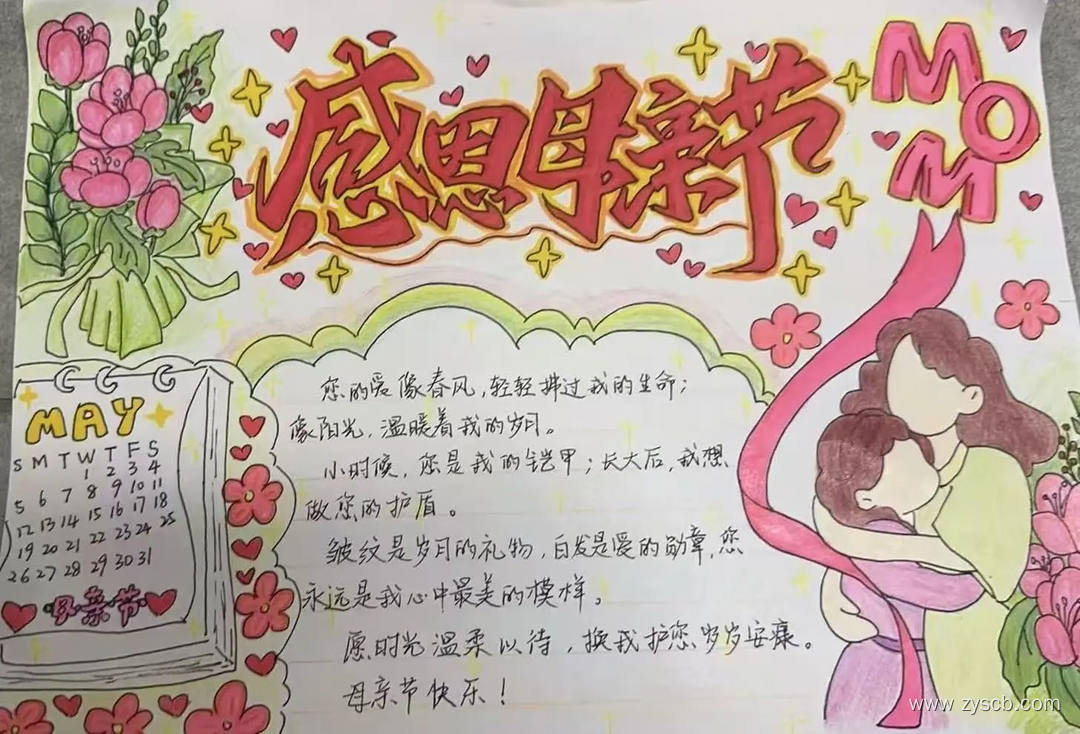 感恩母亲节
MOM
您的爱像春风,轻轻拂过我的生命;
像阳光,温暖着我的岁月。
小时候,您是我的铠甲;长大后,我想
做您的护盾。
皱纹是岁月的礼物,白发是爱的勋章,您
永远是我心中最美的模样。
愿时光温柔以待,换我护您岁岁安康。
母亲节快乐!
MAY
S M T W T F S
1 2 3 4
5 6 7 8 9 10 11
12 13 14 15 16 17 18
19 20 21 22 23 24 25
26 27 28 29 30 31
母亲节
www.zyscb.com